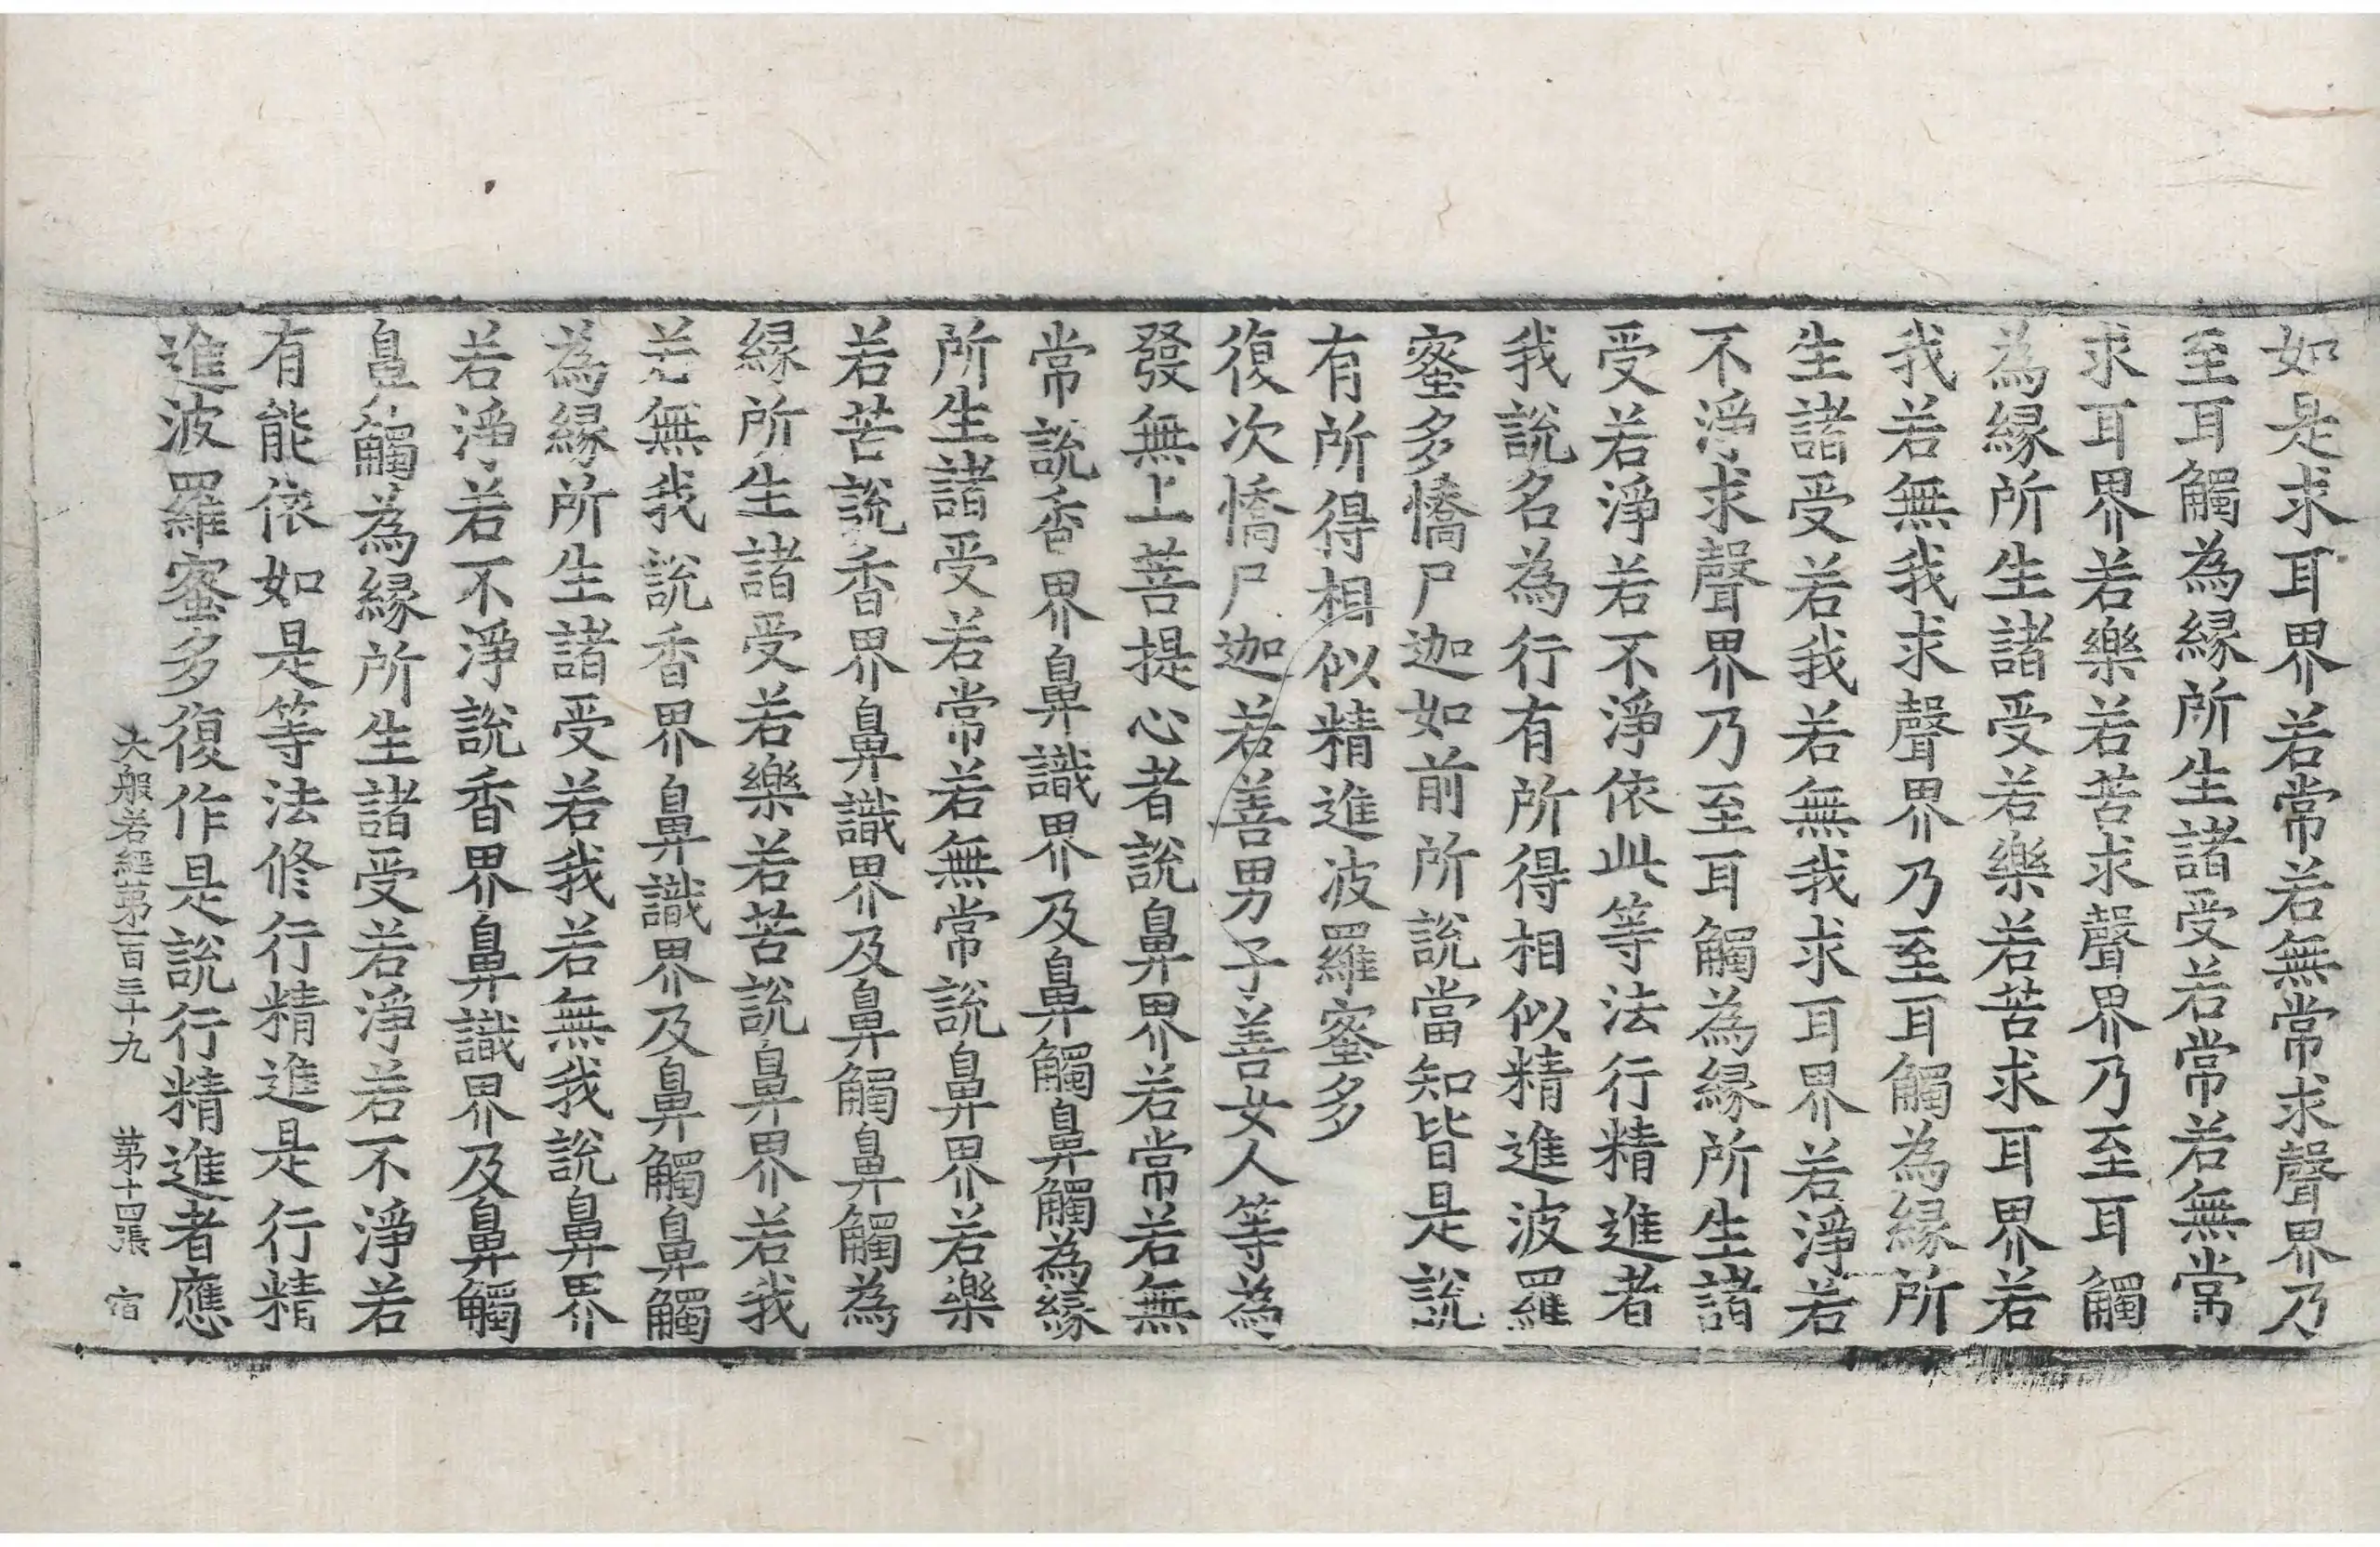 如是求耳界若常若無常求聲界乃
至耳觸為緣所生諸受若常若無常
求耳界若樂若苦求聲界乃至耳觸
為緣所生諸受若樂若苦求耳界若
我若無我求聲界乃至耳觸為緣所
生諸受若我若無我求耳界若淨若
不淨求聲界乃至耳觸為緣所生諸
受若淨若不淨依此等法行精進者
我說名為行有所得相似精進波羅
蜜多憍尸迦如前所說當知皆是說
有所得相似精進波羅蜜多
復次憍尸迦若善男子善女人等為
發無上菩提心者說鼻界若常若無
常說香界鼻識界及鼻觸鼻觸為緣
所生諸受若常若無常說鼻界若樂
若苦說香界鼻識界及鼻觸鼻觸為
緣所生諸受若樂若苦說鼻界若我
若無我說香界鼻識界及鼻觸鼻觸
為緣所生諸受若我若無我說鼻界
若淨若不淨說香界鼻識界及鼻觸
鼻觸為緣所生諸受若淨若不淨若
有能依如是等法修行精進是行精
進波羅蜜多復作是說行精進者應
大般若經第一百三十九 第十四張 宿